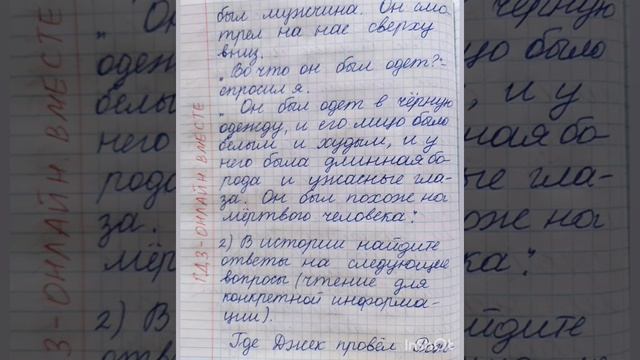 был мужчина. Он смо
трел на нас сверху
вниз.
"Во что он был одет?"-
спросил я.
"Он был одет в чёрную
одежду, и его лицо было
белым и худым, и у
него была длинная бо
рода и ужасные гла-
за. Он был похож на
мёртвого человека".
2) В истории найдите
ответы на следующие
вопросы (чтение для
конкретной информа-
ции).
Где Джек провёл
ГДЗ-ОНЛАЙН ВМЕСТЕ